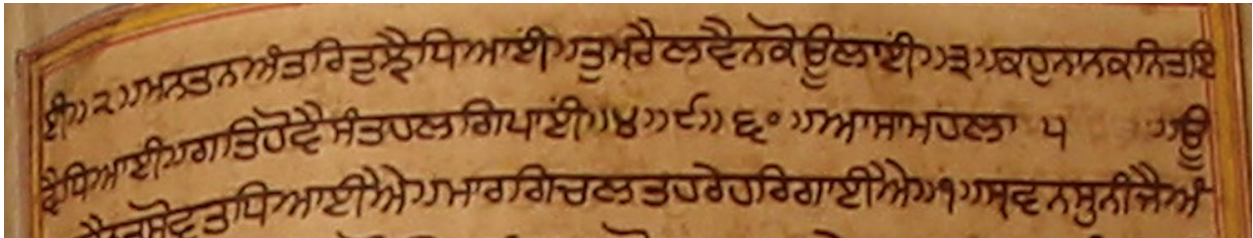 ਈ॥੨॥ਮਨਤਨਅੰਤਰਿਤੁਝੈਧਿਆਈ॥ਤੁਮਰੈਲਵੈਨਕੋਊਲਾਈ॥੩॥ਕਹੁਨਾਨਕਨਿਤਇ
ਵੈਧਿਆਈ॥ਗਤਿਹੋਵੈਸੰਤਹਲਗਿਪਾਈ॥੪॥੯॥੬੦॥ਆਸਾਮਹਲਾ ੫ ॥ਊ
ਸੋਵਤਧਿਆਈਐ॥ਮਾਰਗਿਚਲਤਹਰੇਹਰਿਗਾਈਐ॥੧॥ਸ੍ਰਵਨਸੁਨੀਜੈਅੰ